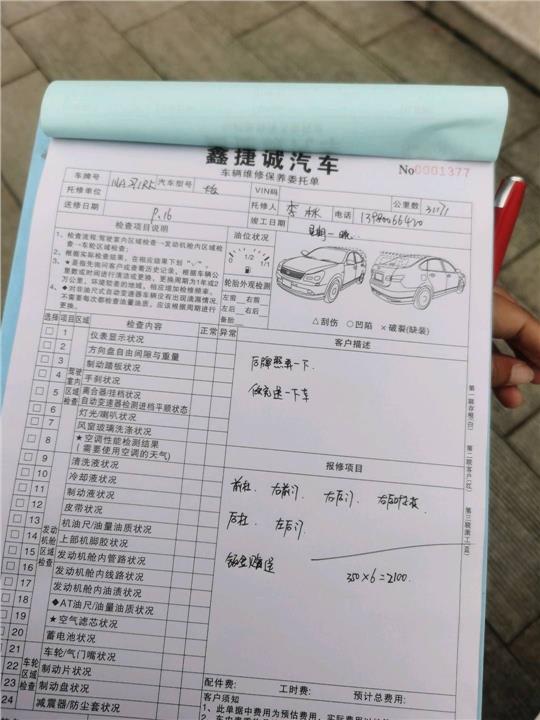 鑫捷诚汽车
车辆维修保养委托单
No0001377
车牌号
汽车型号
VIN码
公里数
托修单位
托修人 李
电话
送修日期
竣工日期
检查项目说明
油位状况
1/2 1/1
1、检查流程:驾驶室内区域检查→发动机舱内区域检查→车轮区域检查;
2、根据实际检查结果,在相应结果下划“√”。
3、★是指先询问客户或查看历史记录,根据车辆公里数或时间进行清洁或更换。更换周期为1年或2万公里。环境较差的地域,相应增加检修频率。
4、◆对非油尺式自动变速器车辆没有出现滴漏情况,不需要每次都检查油量油质。应该根据周期进行更换。
轮胎外观检测
左前 右前
左后 右后
备胎
△刮伤 ○凹陷 ×破裂(缺装)
选择 项目 区域 检查内容 正常 异常
客户描述
驾驶室内区域检查
1 仪表显示状况
2 方向盘自由间隙与重量
3 制动踏板状况
4 手刹状况
5 离合器/挂档状况
自动变速器检测进档平顺状态
6 灯光/喇叭状况
7 风窗玻璃洗涤状况
8 ★空调性能检测结果
(需要使用空调的天气)
后牌照弄一下
做完送一下车
报修项目
发动机舱内区域检查
9 清洗液状况
10 冷却液状况
11 制动液状况
12 皮带状况
13 机油尺/油量油质状况
14 上部机脚胶状况
15 发动机舱内管路状况
16 发动机舱内线路状况
17 发动机舱内油渍状况
18 ◆AT油尺/油量油质状况
19 ★空气滤芯状况
20 蓄电池状况
前杠 右前门 右后门
后杠 左后门
350×6=2100
车轮区域检查
21 车轮/气门嘴状况
22 制动片状况
23 制动盘状况
24 减震器/防尘套状况
配件费: 工时费: 预计总费用:
客户须知
第一联存根(白) 第二联客户(红) 第三联派工(蓝)